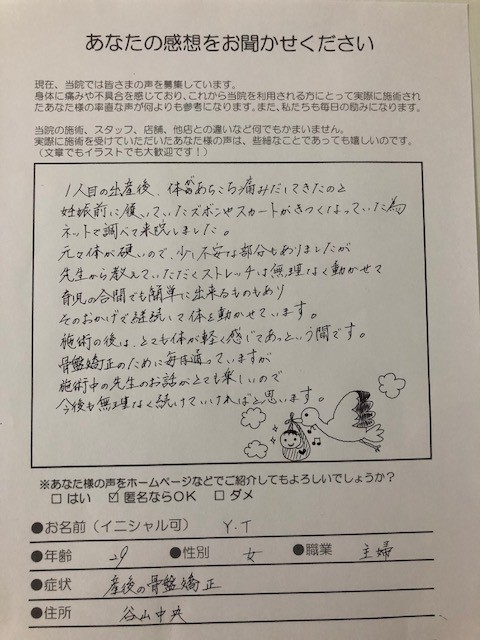 あなたの感想をお聞かせください
現在、当院では皆さまの声を募集しています。
身体に痛みや不具合を感じており、これから当院を利用される方にとって実際に施術され
たあなた様の率直な声が何よりも参考になります。また、私たちも毎日の励みになります。
当院の施術、スタッフ、店舗、他店との違いなど何でもかまいません。
実際に施術を受けていただいたあなた様の声は、些細なことであっても嬉しいのです。
（文章でもイラストでも大歓迎です！）
1人目の出産後、体があちこち痛みだしてきたのと
妊娠前に履いていたズボンやスカートがきつくなっていた為
ネットで調べて来院しました。
元々体が硬いので、少し不安な部分もありましたが
先生から教えていただくストレッチは無理なく動かせて
育児の合間でも簡単に出来るものもあり
そのおかげで継続して体を動かせています。
施術の後は、とても体が軽く感じてあっという間です。
骨盤矯正のために毎週通っていますが
施術中の先生のお話がとても楽しいので
今後も無理なく続けていければと思います。
※あなた様の声をホームページなどでご紹介してもよろしいでしょうか？
□はい ☑匿名ならOK □ダメ
●お名前（イニシャル可） Y.T
●年齢 29 ●性別 女 ●職業 主婦
●症状 産後の骨盤矯正
●住所 谷山中央